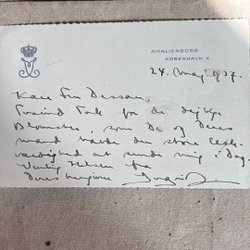 AMALIENBORG
KØBENHAVN K
24. Maj 1937.
Kære Fru Dessau,
Tusind Tak for de dejlige
Blomster, som De og Deres
Mand havde den store Elsk-
værdighed at sende mig i Dag.
Venlig Hilsen fra
Deres hengivne Ingrid